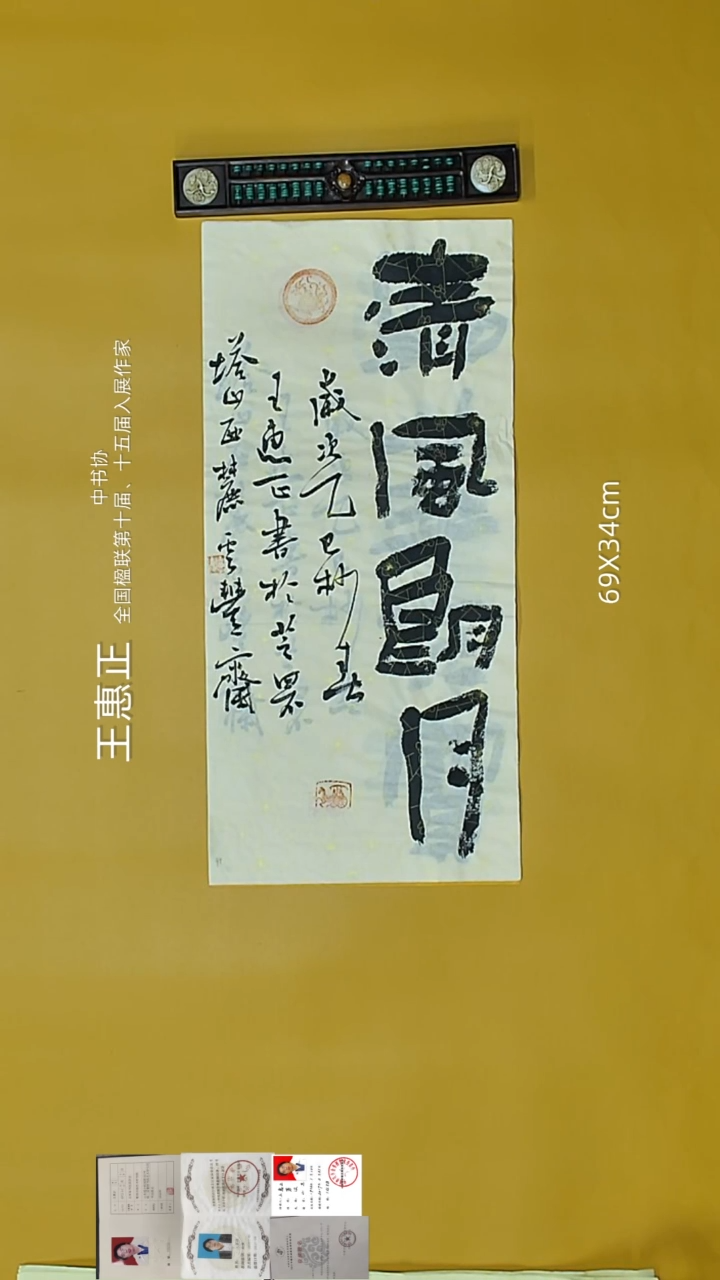 清風朗月
歲次乙巳杪春
王惠正書於芝罘
塔山西麓雲齋
王惠正
中书协
全国楹联第十届、十五届入展作家
69X34cm